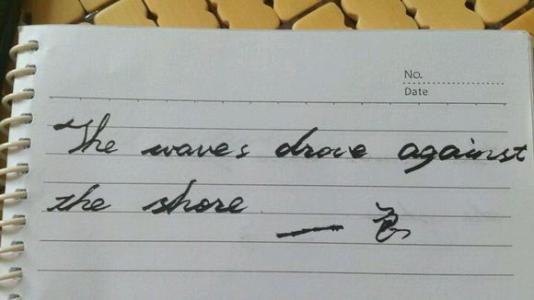 No.
Date
The waves drove against
the shore —